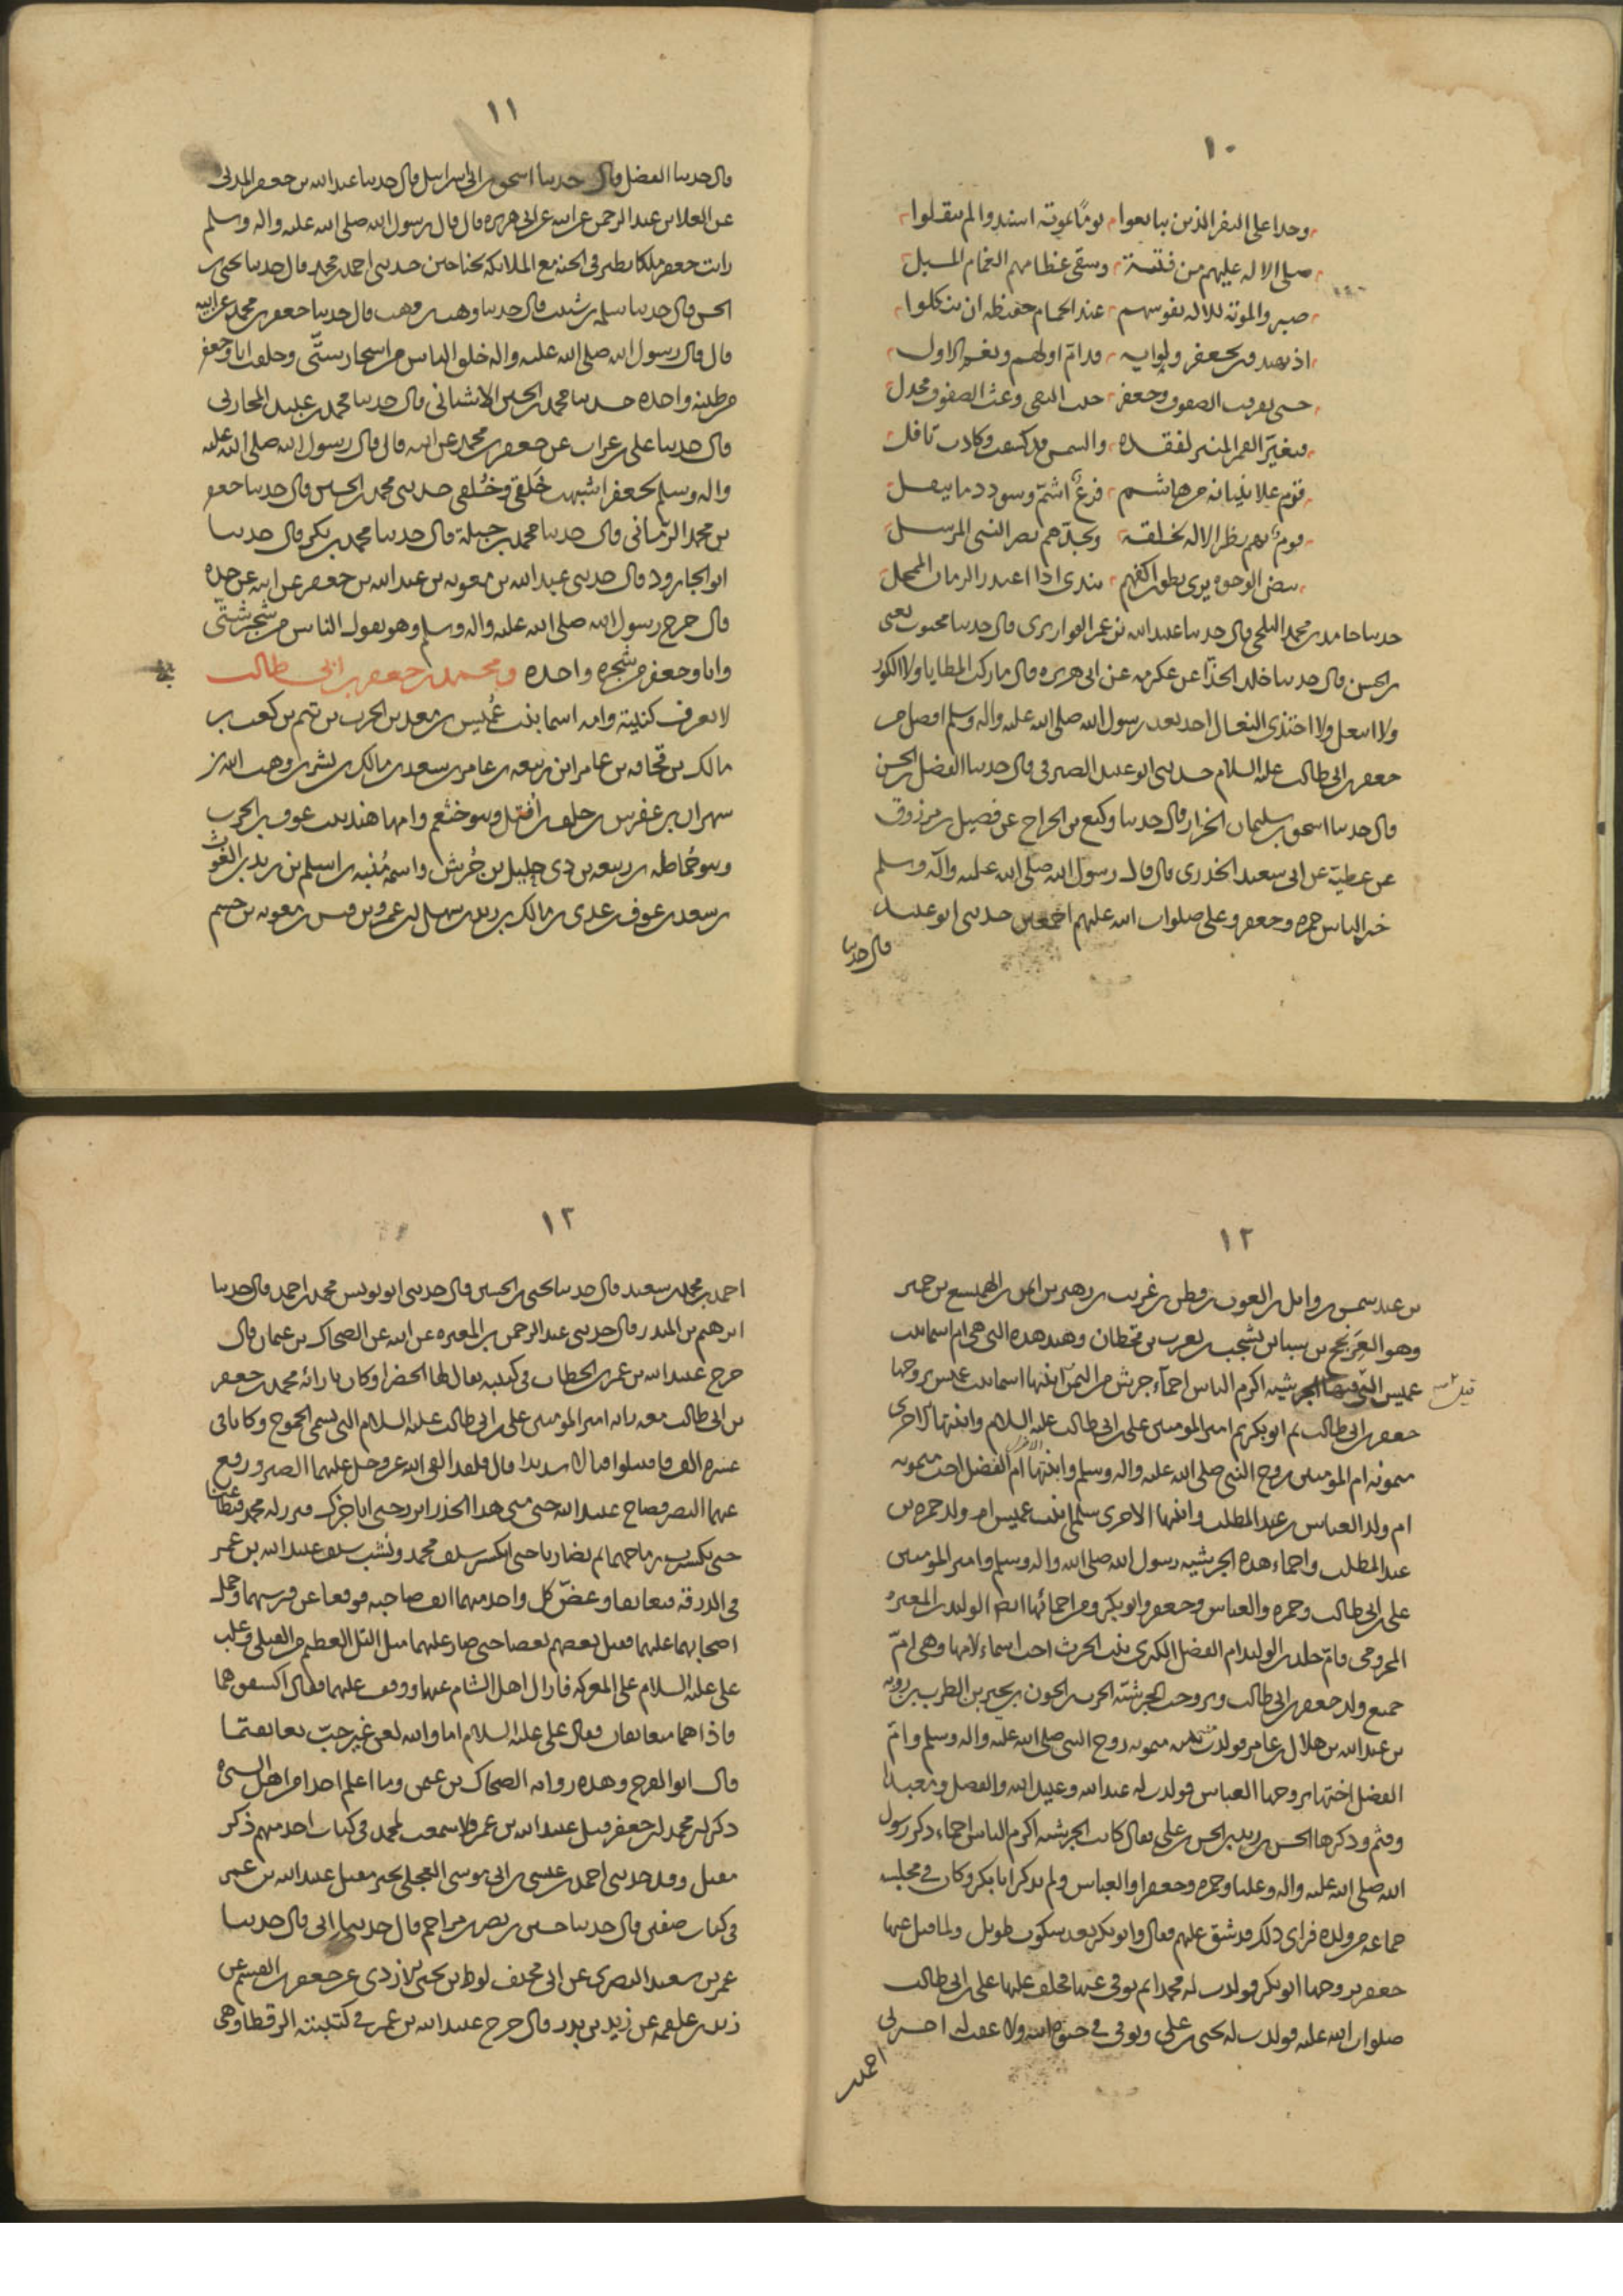 ١٠
وجدا على النفر الذين تتابعوا يوما بموتة اسندوا لم ينقلوا
صلى الاله عليهم من فتية وسقى عظامهم الغمام المسبل
صبروا بموتة للاله نفوسهم عند الحمام حفيظة ان ينكلوا
اذ يهتدون بجعفر ولوايه قدام اولهم ونعم الاول
حتى تفرقت الصفوف وجعفر حيث التقى وعث الصفوف مجدل
فتغير القمر المنير لفقده والشمس قد كسفت وكادت تافل
قوم علا بنيانه من هاشم فرع اشم وسودد ما ينقل
قوم بهم نظر الاله لخلقه وبجدهم نصر النبي المرسل
بيض الوجوه يرى بطون اكفهم تندى اذا اعتذر الزمان الممحل
حدثنا حامد بن محمد البلخي قال حدثنا عبد الله بن عمر القواريري قال حدثنا محبوب يعني
بن الحسن قال حدثنا خالد الحذا عن عكرمه عن ابي هريره قال ما ركب المطايا ولا الكور
ولا انتعل ولا احتذى النعال احد بعد رسول الله صلى الله عليه واله وسلم افضل من
جعفر بن ابي طالب عليه السلام حدثني ابو عبيد الصيرفي قال حدثنا الفضل بن الحسن
قال حدثنا اسحق بن سليمان الخزاز قال حدثنا وكيع بن الجراح عن فضيل بن مرزوق
عن عطية عن ابي سعيد الخدري قال قال رسول الله صلى الله عليه وآله وسلم
خير الناس حمزه وجعفر وعلي صلوات الله عليهم اجمعين حدثني ابو عبيد
قال حدثنا
١١
قال حدثنا الفضل قال حدثنا اسحق بن ابي اسرايل قال حدثنا عبد الله بن جعفر المدني
عن العلا بن عبد الرحمن عن ابيه عن ابي هريره قال قال رسول الله صلى الله عليه واله وسلم
رايت جعفر ملكا يطير في الجنه مع الملائكه بجناحين حدثني احمد بن محمد قال حدثنا يحيى بن
الحسن قال حدثنا سلمه بن شبيب قال حدثنا وهب بن وهب قال حدثنا جعفر بن محمد عن ابيه
قال قال رسول الله صلى الله عليه واله خلق الناس من اشجار شتى وخلقت انا وجعفر
من طينه واحده حدثنا محمد بن الحسين الاشناني قال حدثنا محمد بن عبيد المحاربي
قال حدثنا علي بن غراب عن جعفر بن محمد عن ابيه قال قال رسول الله صلى الله عليه
واله وسلم لجعفر اشبهت خلقي وخلقي حدثني محمد بن الحسين قال حدثنا جعفر
بن محمد الرماني قال حدثنا محمد بن جبلة قال حدثنا محمد بن بكر قال حدثنا
ابو الجارود قال حدثني عبد الله بن معويه بن عبد الله بن جعفر عن ابيه عن جده
قال خرج رسول الله صلى الله عليه واله وسلم وهو يقول الناس من شجر شتى
وانا وجعفر من شجره واحده ومحمد بن جعفر بن ابي طالب
لا تعرف كنيته وامه اسما بنت عميس بن معد بن الحرث بن تيم بن كعب بن
مالك بن قحافه بن عامر ابن ربيعه بن عامر بن سعد بن مالك بن بشر بن وهب الله بن
شهران بن عفرس بن خلف بن افتل وهو خثعم وامها هند بنت عوف بن الحرث
وهو حماطه بن ربيعه بن ذي جليل بن جرش واسمه منبه بن اسلم بن زيد بن الغوث
بن سعد بن عوف بن عدي بن مالك بن زيد بن سهل بن عمرو بن قيس بن معويه بن جشم
١٢
بن عبد شمس بن وايل بن الغوث بن قطن بن غريب بن زهير بن ايمن بن الهميسع بن حمير
وهو العرنجج بن سبا بن يشجب بن يعرب بن قحطان وهند هذه التي هي ام اسما بنت
عميس التي قيل الجرشيه اكرم الناس احمآء جرش من اليمن ابنتها اسما بنت عميس تزوجها
جعفر بن ابي طالب ثم ابو بكر ثم امير المومنين علي بن ابي طالب عليه السلام وابنتها الاخرى
ميمونه ام المومنين زوج النبي صلى الله عليه واله وسلم وابنتها الاخرى ام الفضل اخت ميمونه
ام ولد العباس بن عبد المطلب وابنتها الاخرى سلمى ابنت عميس ام ولد حمزه بن
عبد المطلب واحماء هذه الجرشيه رسول الله صلى الله واله وسلم وامير المومنين
علي بن ابي طالب وحمزه والعباس وجعفر وابو بكر ومن احمائها ايضا الوليد بن المغيره
المخزومي فام خلد بن الوليد ام الفضل الكبرى بنت الحرث اخت اسماء لامها وهي ام
جميع ولد جعفر بن ابي طالب وتزوجت الجرشيه الحرث بن الحزن بن بجير بن الهرم بن رويبه
بن عبد الله بن هلال بن عامر فولدت منه ميمونه زوج النبي صلى الله عليه واله وسلم وام
الفضل اختها تزوجها العباس فولدت له عبد الله وعبيد الله والفضل ومعبدا
وقثم وذكرها الحسن بن زيد بن الحسن بن علي فقال كانت الجرشيه اكرم الناس احماء ذكر رسول
الله صلى الله عليه واله وعليا وحمزه وجعفرا والعباس ولم يذكر ابا بكر وكان في مجلسه
جماعه من ولده فراى ذلك قد شق عليهم فقال وابو بكر بعد سكوت طويل ولما قتل عنها
جعفر تزوجها ابو بكر فولدت له محمدا ثم توفي عنها فخلف عليها علي بن ابي طالب
صلوات الله عليه فولدت له يحيى بن علي وتوفي في حيوة ابيه ولا عقب له اخبرني
احمد بن
١٣
احمد بن محمد بن سعيد قال حدثنا يحيى بن الحسين قال حدثني ابو يونس محمد بن احمد قال حدثنا
ابرهيم بن المنذر قال حدثني عبد الرحمن بن المغيره عن ابيه عن الضحاك بن عثمان قال
خرج عبيد الله بن عمر بن الخطاب في كتيبه يقال لها الخضرا وكان بازائه محمد بن جعفر
بن ابي طالب معه رايه امير المومنين علي بن ابي طالب عليه السلام التي تسمى الجموح وكانا في
عشره الف فاقتتلوا قتالا شديدا قال فلقد القى الله عز وجل عليهما الصبر ورفع
عنهما النصر فصاح عبيد الله حتى متى هذا الحذر ابرز حتى اناجزك فبرز له محمد فتطاعنا
حتى تكسرت رماحهما ثم تضاربا حتى انكسر سيف محمد ونشب سيف عبيد الله بن عمر
في الدرقة فتعانقا وعض كل واحد منهما انف صاحبه فوقعا عن فرسيهما وحمل
اصحابهما عليهما فقتل بعضهم بعضا حتى صار عليهما مثل التل العظيم من القتلى وغلب
علي عليه السلام على المعركه فازال اهل الشام عنهما ووقف عليهما فقال اكشفوهما
فاذا هما متعانقان فقال علي عليه السلام اما والله لعن غير حب تعانقتما
قال ابو الفرج وهذه روايه الضحاك بن عثمن وما اعلم احدا من اهل السيره
ذكر ان محمد بن جعفر قتل عبيد الله بن عمر ولا سمعت لمحمد في كتاب احد منهم ذكر
مقتل وقد حدثني احمد بن عيسى بن ابي موسى العجلي بخبر مقتل عبيد الله بن عمر
في كتاب صفين قال حدثنا حسين بن نصر بن مزاحم قال حدثنا ابي قال حدثنا
عمر بن سعيد البصري عن ابي مخنف لوط بن يحيى الازدي عن جعفر بن القسم عن
زيد بن علقمه عن زيد بن بدر قال خرج عبيد الله بن عمر في كتيبته الرقطا وهي